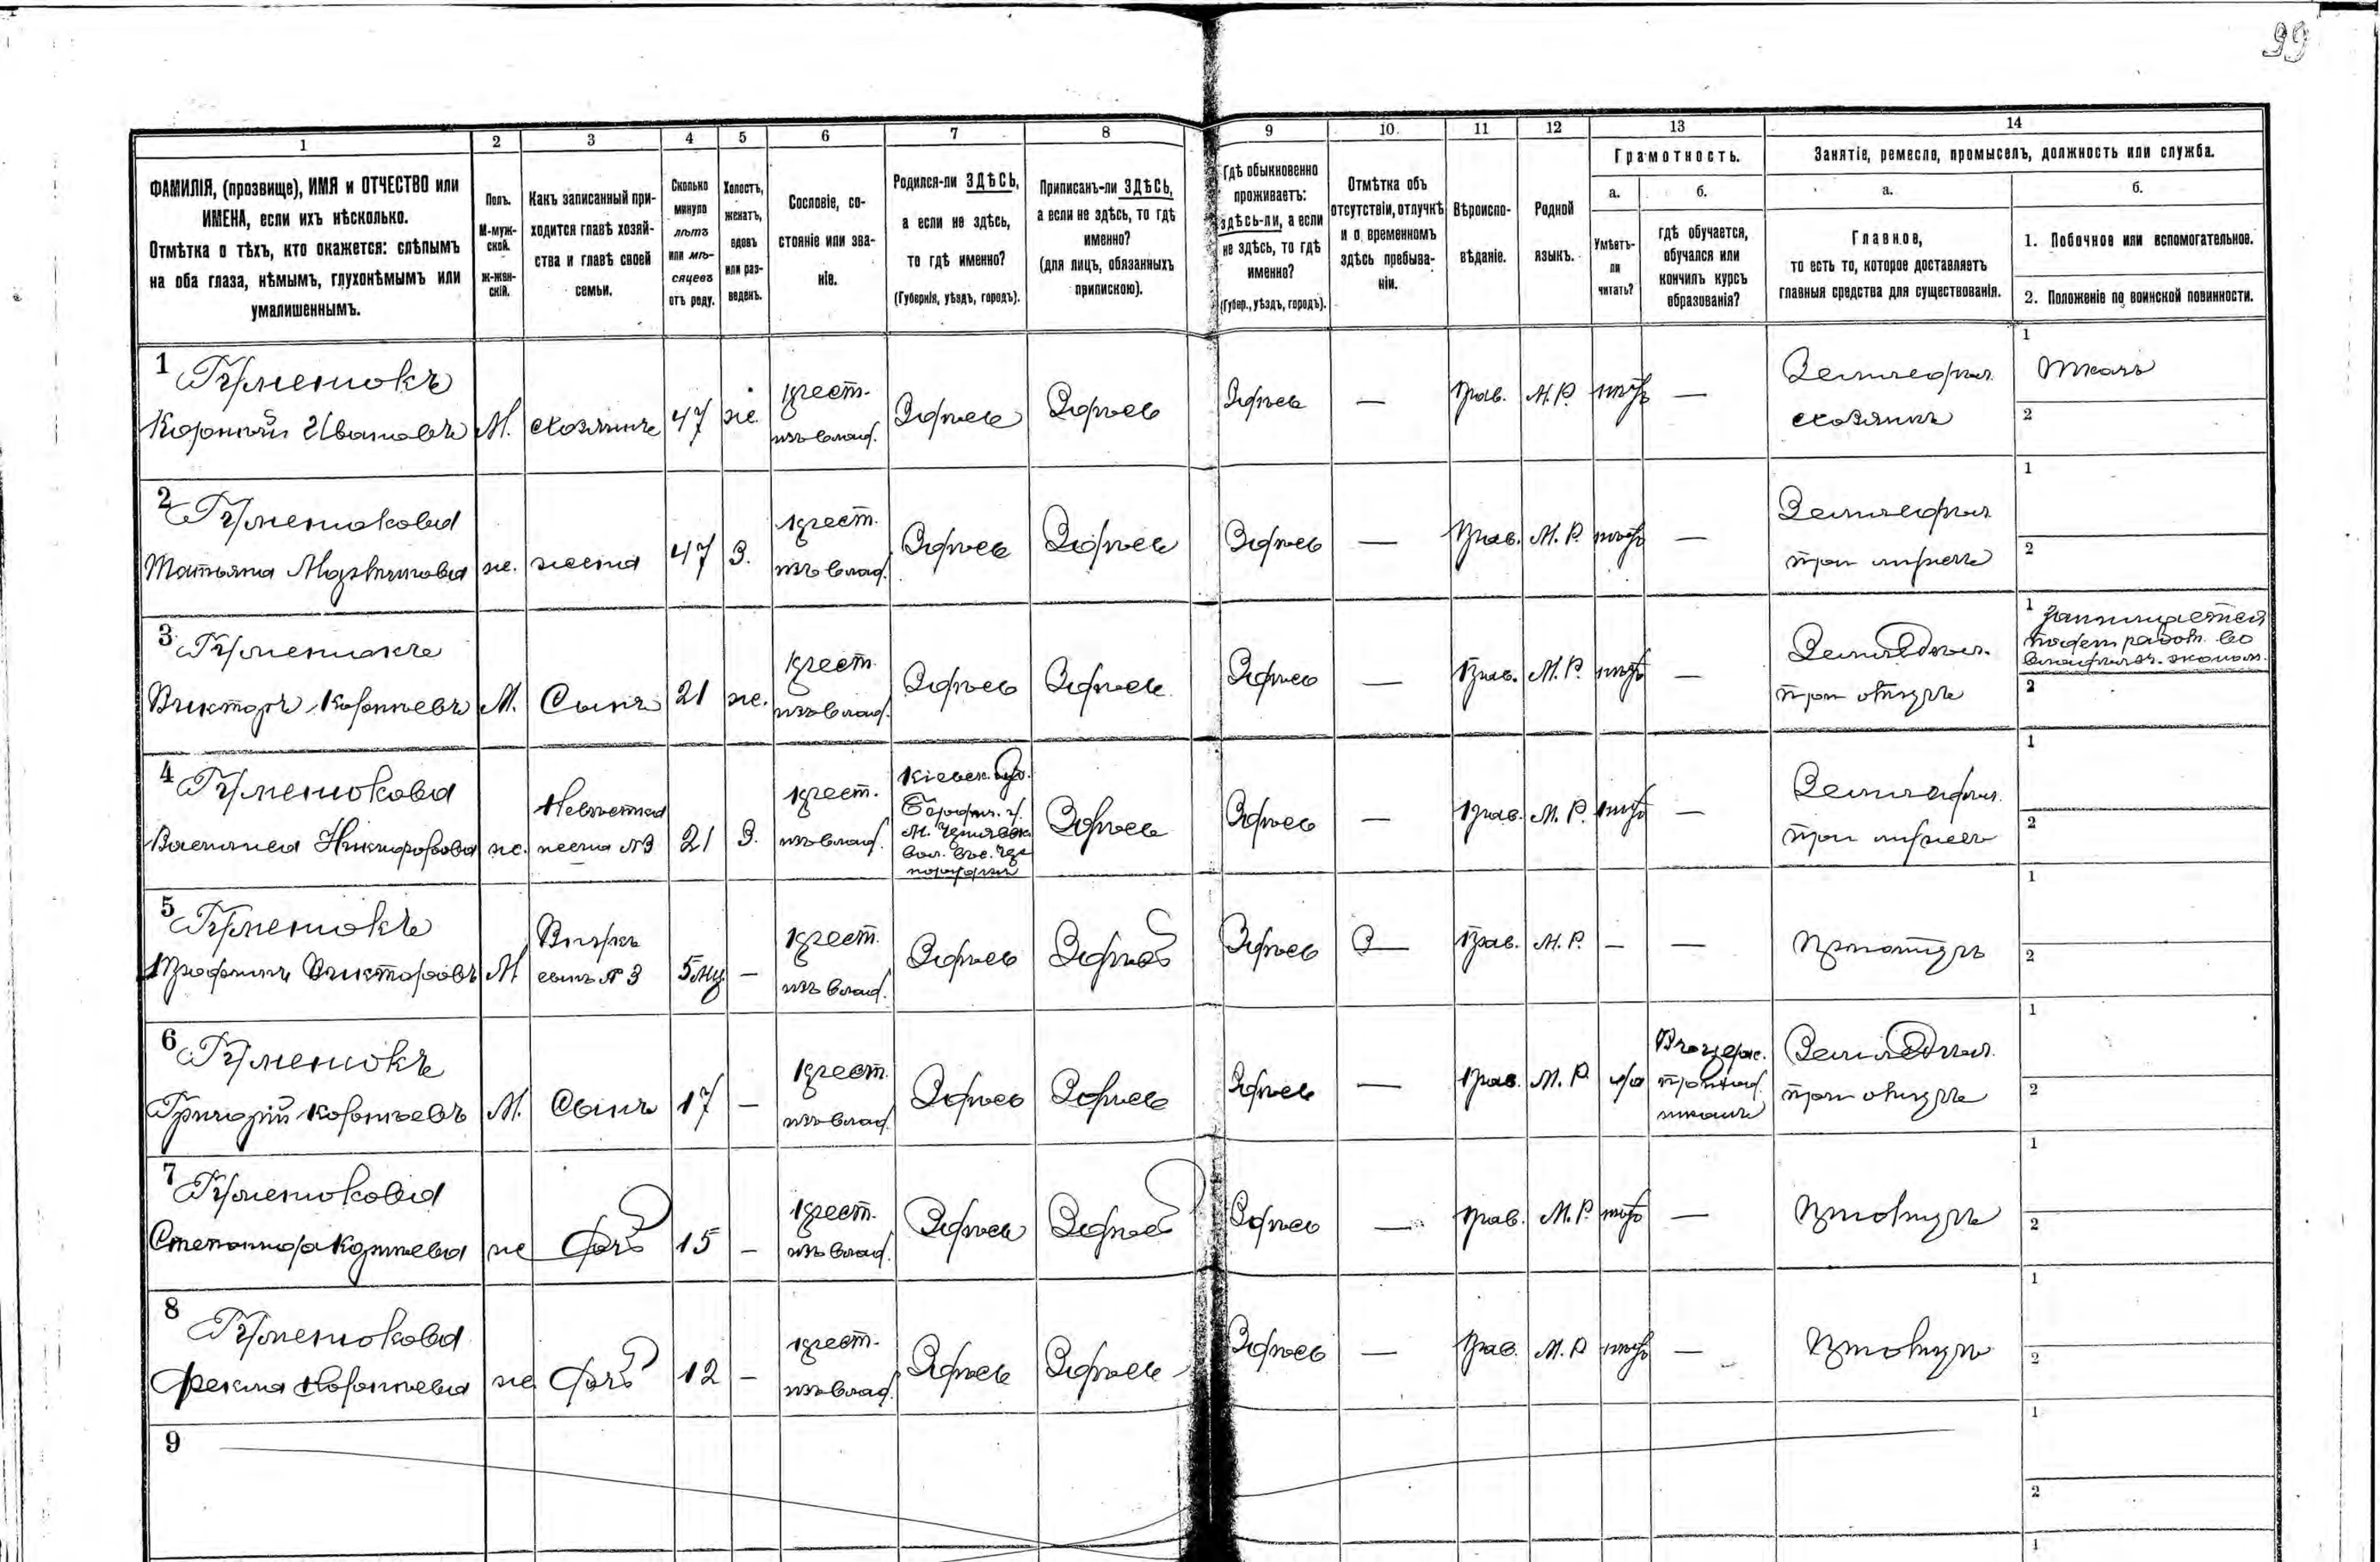 99
1
2
3
4
5
6
7
8
9
10
11
12
13
14
ФАМИЛІЯ, (прозвище), ИМЯ и ОТЧЕСТВО или
ИМЕНА, если ихъ нѣсколько.
Отмѣтка о тѣхъ, кто окажется: слѣпымъ
на оба глаза, нѣмымъ, глухонѣмымъ или
умалишеннымъ.
Полъ.
М-муж-
ской.
ж-жен-
скій.
Какъ записанный при-
ходится главѣ хозяй-
ства и главѣ своей
семьи.
Сколько
минуло
лѣтъ
или мѣ-
сяцевъ
отъ роду.
Холостъ,
женатъ,
вдовъ
или раз-
веденъ.
Сословіе, со-
стояніе или зва-
ніе.
Родился-ли ЗДѢСЬ,
а если не здѣсь,
то гдѣ именно?
(Губернія, уѣздъ, городъ).
Приписанъ-ли ЗДѢСЬ,
а если не здѣсь, то гдѣ
именно?
(для лицъ, обязанныхъ
припискою).
Гдѣ обыкновенно
проживаетъ:
здѣсь-ли, а если
не здѣсь, то гдѣ
именно?
(Губер., уѣздъ, городъ).
Отмѣтка объ
отсутствіи, отлучкѣ
и о временномъ
здѣсь пребыва-
ніи.
Вѣроиспо-
вѣданіе.
Родной
языкъ.
Грамотность.
а.
Умѣетъ-
ли
читать?
б.
гдѣ обучается,
обучался или
кончилъ курсъ
образованія?
Занятіе, ремесло, промыселъ, должность или служба.
а.
Главное,
то есть то, которое доставляетъ
главныя средства для существованія.
б.
1. Побочное или вспомогательное.
2. Положеніе по воинской повинности.
1
Корній Ивановъ М. хозяинъ 47 ж. крест. изъ влад. Здѣсь Здѣсь Здѣсь — Прав. М. Р. нѣтъ — Земледѣл. хозяинъ
1 Ткачъ
2
2
Татьяна ж. жена 47 З. крест. изъ влад. Здѣсь Здѣсь Здѣсь — Прав. М. Р. нѣтъ — Земледѣл. при мужѣ
1
2
3
Викторъ Корніевъ М. Сынъ 21 ж. крест. изъ влад. Здѣсь Здѣсь Здѣсь — Прав. М. Р. нѣтъ — Земледѣл. при отцѣ
1 занимается
поден. работ. во
владѣльч. эконом.
2
4
Никифорова ж. Невѣстка жена №3 21 З. крест. изъ влад. Кіевск. губ. Здѣсь Здѣсь — Прав. М. Р. нѣтъ — Земледѣл. при мужѣ
1
2
5
Викторовъ М Внукъ сынъ №3 5 мц. — крест. изъ влад. Здѣсь Здѣсь Здѣсь — Прав. М. Р. — — При отцѣ
1
2
6
Григорій Корніевъ М. Сынъ 17 — крест. изъ влад. Здѣсь Здѣсь Здѣсь — Прав. М. Р. да школѣ Земледѣл. при отцѣ
1
2
7
Корніева ж дочь 15 — крест. изъ влад. Здѣсь Здѣсь Здѣсь — Прав. М. Р. нѣтъ — При отцѣ
1
2
8
Фекла Корніева ж дочь 12 — крест. изъ влад. Здѣсь Здѣсь Здѣсь — Прав. М. Р нѣтъ — При отцѣ
1
2
9
1
2
1